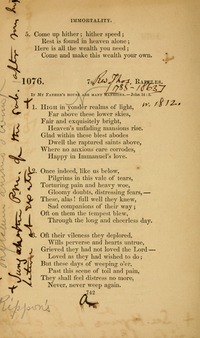 IMMORTALITY.
5. Come up hither; hither speed;
Rest is found in heaven alone;
Here is all the wealth you need;
Come and make this wealth your own.
1076. 7s. Rev. Thos. RAFFLES.
(1788-1863)
IN MY FATHER'S HOUSE ARE MANY MANSIONS.—John 14:2.
w. 1812.
1. HIGH in yonder realms of light,
Far above these lower skies,
Fair and exquisitely bright,
Heaven's unfading mansions rise.
Glad within these blest abodes
Dwell the raptured saints above,
Where no anxious care corrodes,
Happy in Immanuel's love.
Once indeed, like us below,
Pilgrims in this vale of tears,
Torturing pain and heavy woe,
Gloomy doubts, distressing fears,—
These, alas! full well they knew,
Sad companions of their way;
Oft on them the tempest blew,
Through the long and cheerless day.
Oft their vileness they deplored,
Wills perverse and hearts untrue,
Grieved they had not loved the Lord—
Loved as they had wished to do;
But these days of weeping o'er,
Past this scene of toil and pain,
They shall feel distress no more,
Never, never weep again.
742
Rippon's